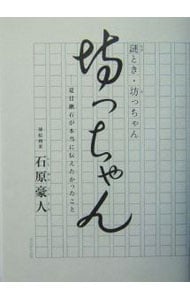 謎とき・坊っちゃん
坊っちゃん
夏目漱石が本当に伝えたかったこと
石原豪人